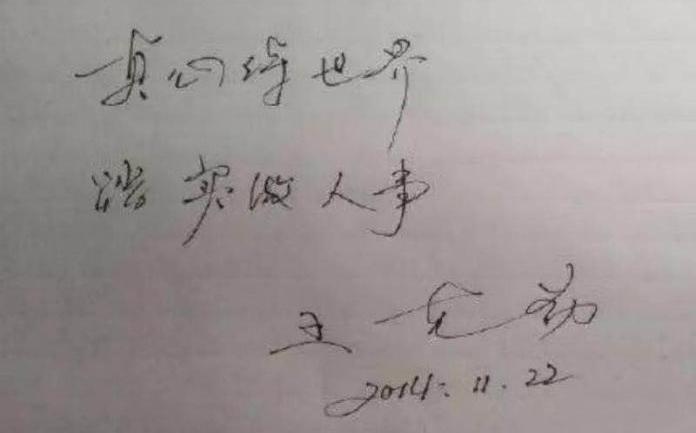 真心待世界
踏实做人事
王克勤
2014.11.22